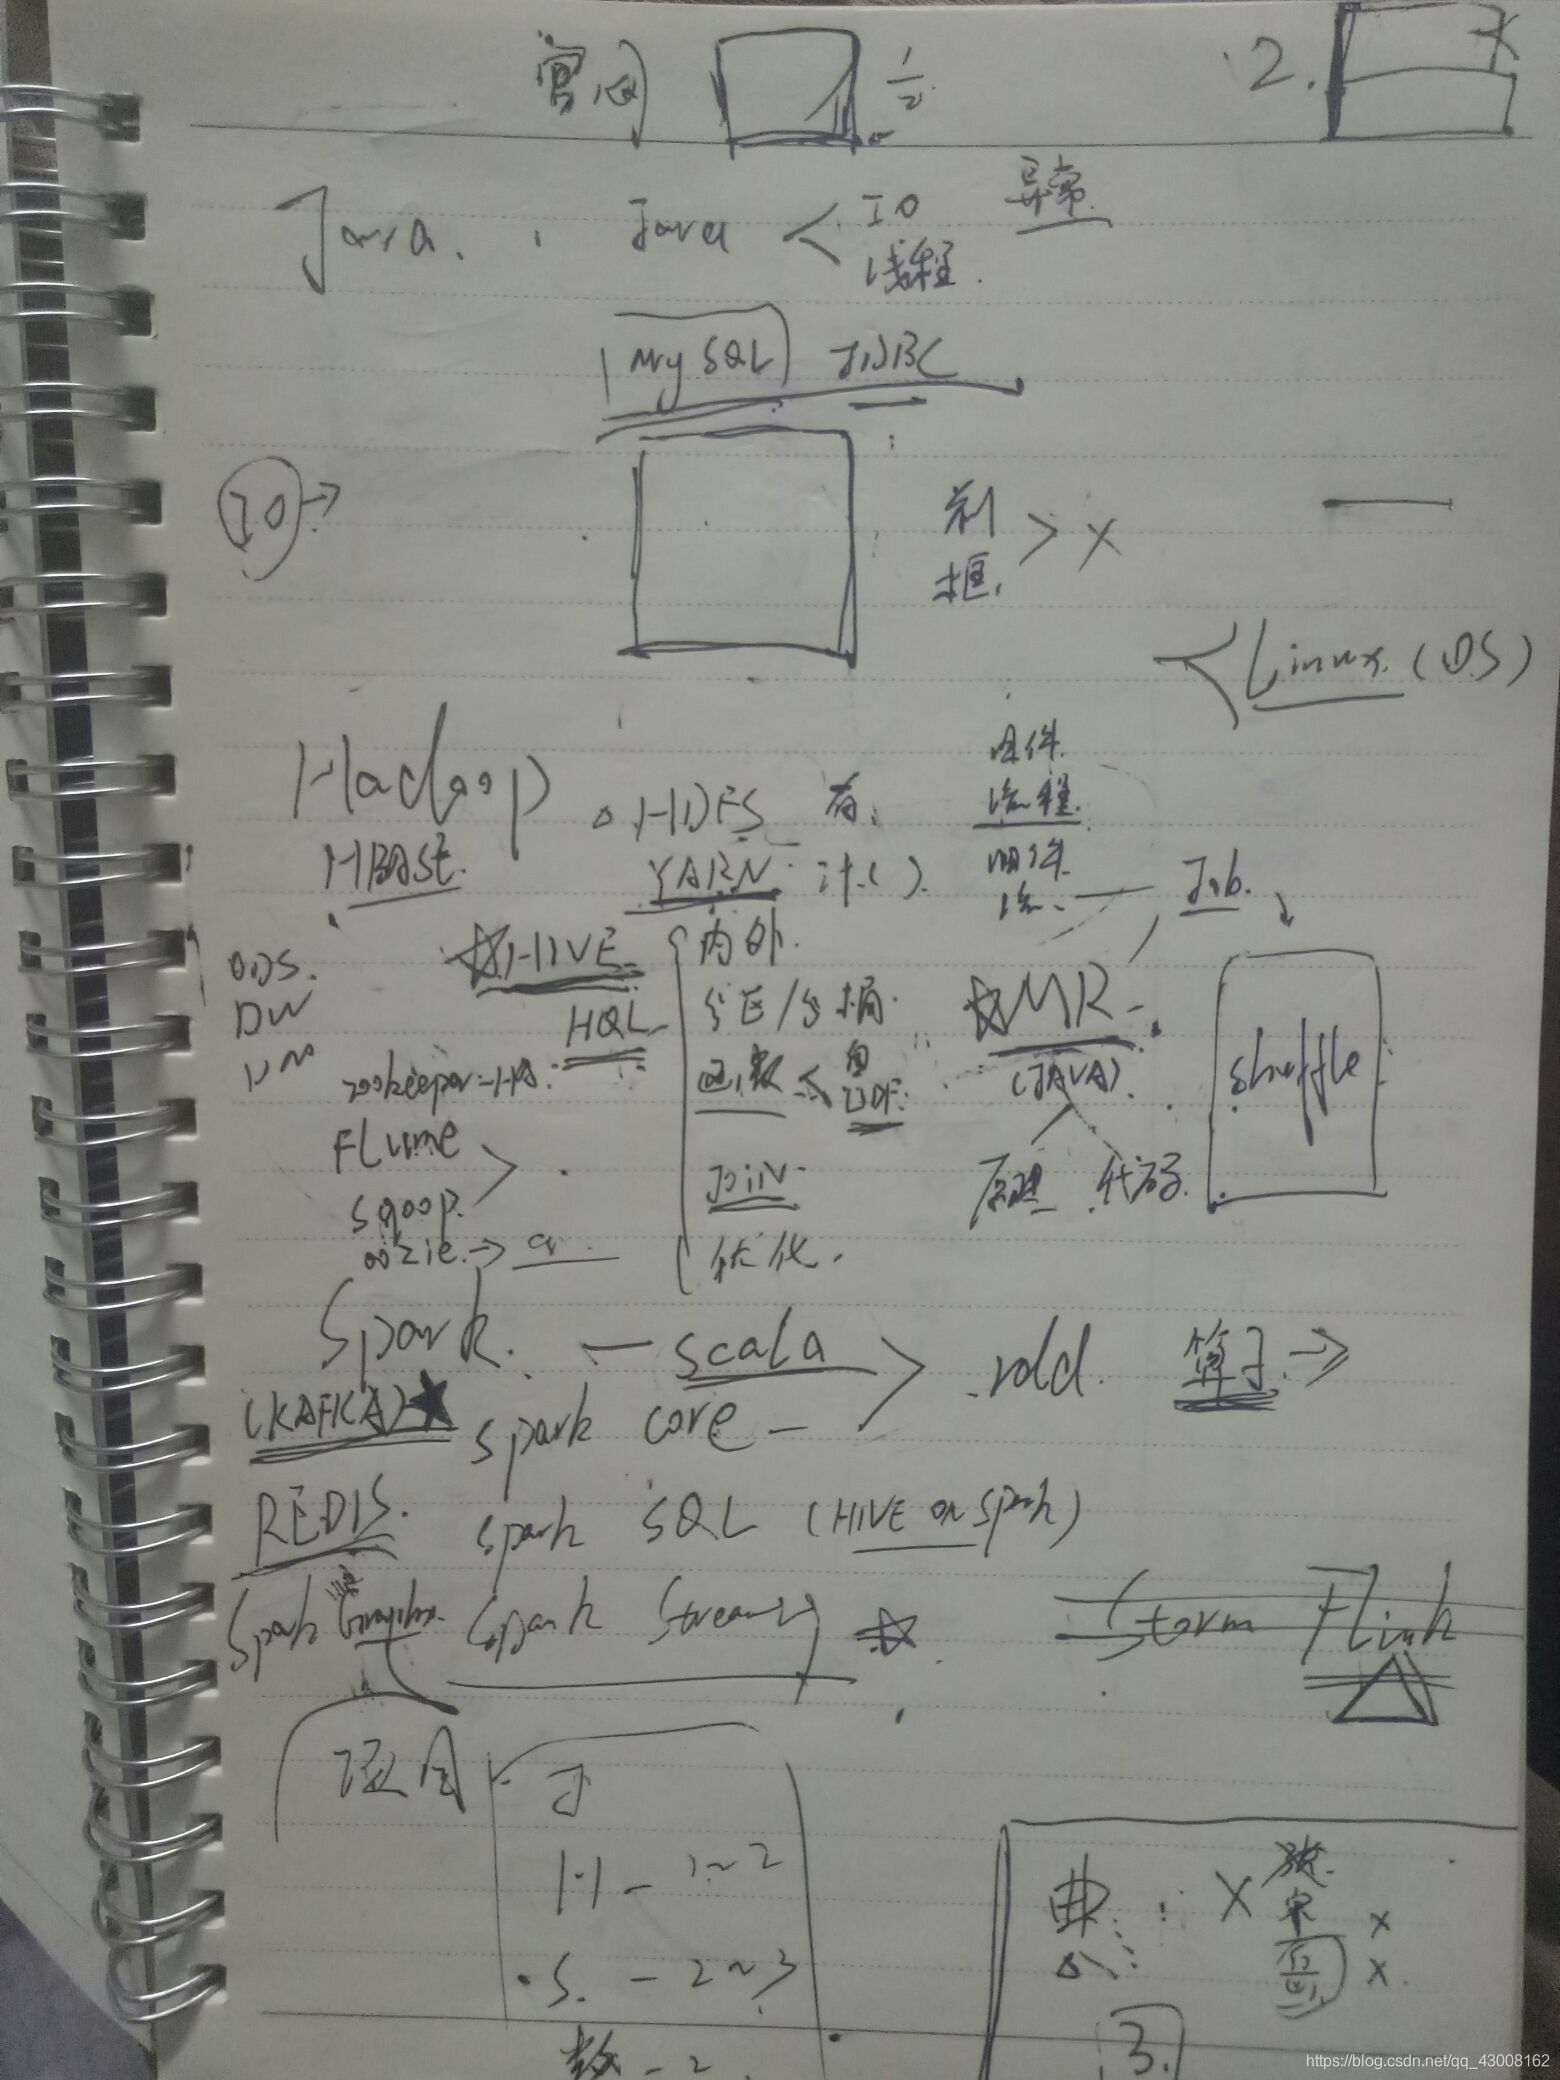 1/2 2.
Java. Java < IO 异常
线程.
MySQL JDBC
IO →
框. > X
Linux. (OS)
Hadoop HDFS 存. 组件.
流程.
HBASE. YARN 计( ). 组件.
流. Job.
☆HIVE 内外.
ODS.
DW 分区/分桶. ☆MR
HQL 函数 < 自
UDF. (JAVA). shuffle
zookeeper-HA.
Flume > .
JOIN. 原理 代码.
sqoop.
oozie. → a. 优化.
Spark. — scala > rdd. 算子 →
(KAFKA)★ spark core —
REDIS. spark SQL (HIVE on spark)
Spark Graphx. Spark Streaming ☆ Storm Flink
项目 J
H - 1~2
X
S. - 2~3 X
X
数 - 2
3.
https://blog.csdn.net/qq_43008162